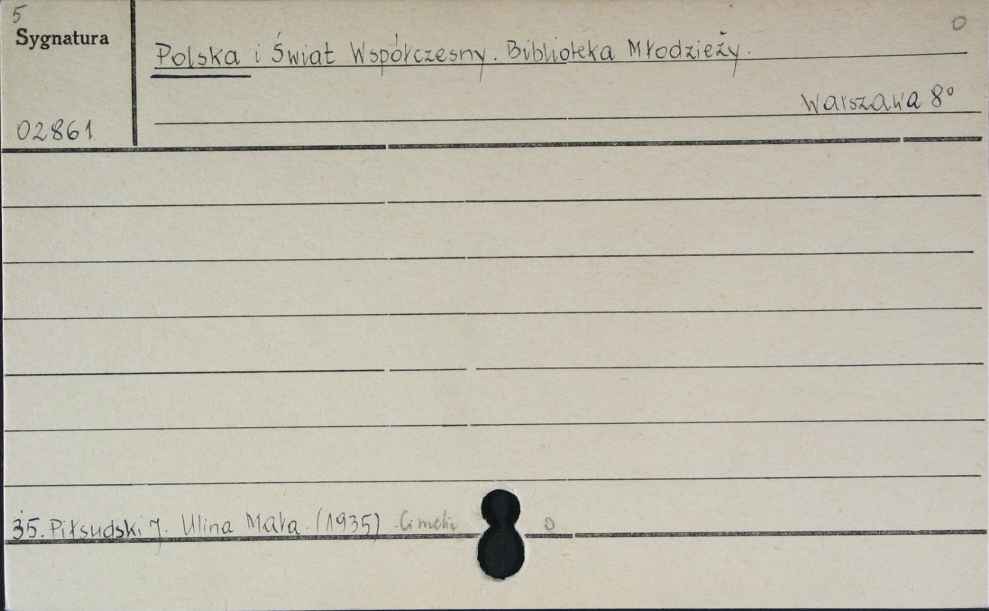 5
Sygnatura
O
Polska i Świat Współczesny. Biblioteka Młodzieży.
Warszawa 8°
02861
35. Piłsudski J. Ulina Mała. (1935)
O